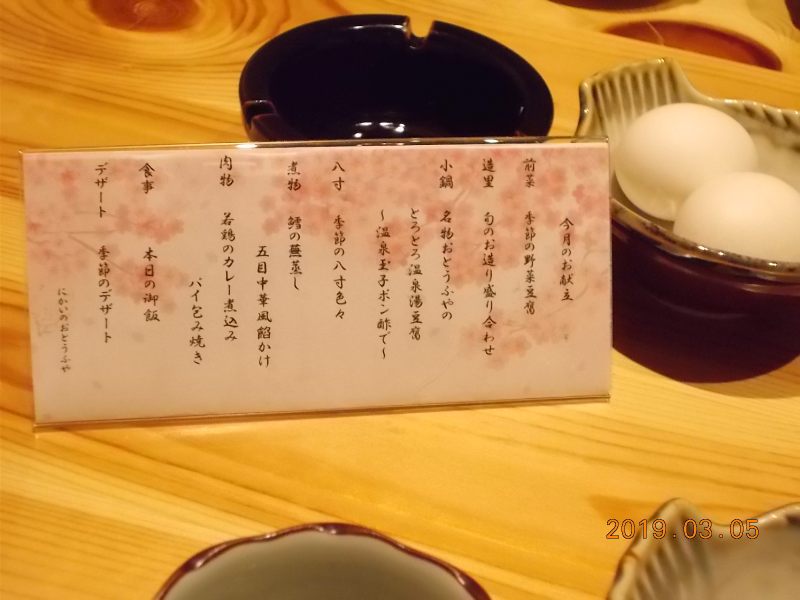 今月のお献立
前菜 季節の野菜豆腐
造里 旬のお造り盛り合わせ
小鍋 名物おとうふやの
とろとろ温泉湯豆腐
～温泉玉子ポン酢で～
八寸 季節の八寸色々
煮物 鱈の蕪蒸し
五目中華風餡かけ
肉物 若鶏のカレー煮込み
パイ包み焼き
食事 本日の御飯
デザート 季節のデザート
にかいのおとうふや
2019.03.05